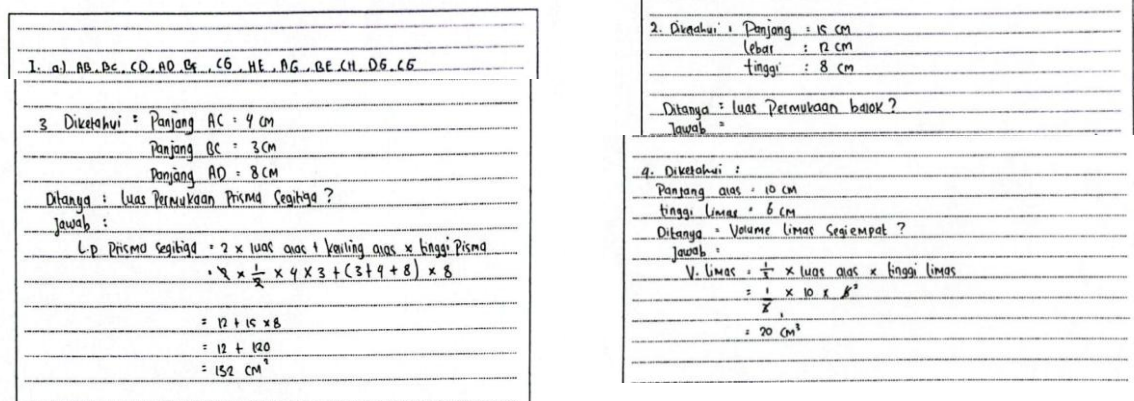 1. a.) AB, BC, CD, AD, BF, CG, HE, AG, BE, CH, DG, CF
3 Diketahui : Panjang AC = 4 cm
Panjang BC = 3 cm
Panjang AD = 8 cm
Ditanya : luas Permukaan Prisma Segitiga ?
Jawab :
L.p Prisma segitiga = 2 x luas alas + keliling alas x tinggi Pisma
= 2 x 1/2 x 4 x 3 + (3+4+8) x 8
= 12 + 15 x 8
= 12 + 120
= 132 cm²
2. Diketahui : Panjang = 15 cm
lebar : 12 cm
tinggi : 8 cm
Ditanya = luas Permukaan balok ?
Jawab =
4. Diketahui :
Panjang alas = 10 cm
tinggi Limas = 6 cm
Ditanya = Volume limas Segiempat ?
Jawab =
V. Limas = 1/3 x luas alas x tinggi limas
= 1/3 x 10 x 6 2
1
= 20 cm³